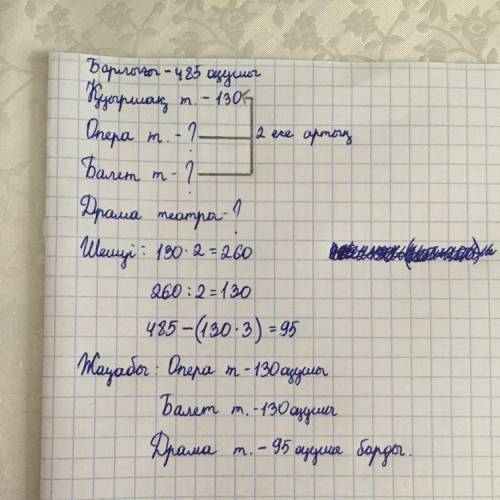 Барлығы - 485 оқушы
Қуыршақ т. - 130
Опера т. - ? 2 есе артық
Балет т - ?
Драма театры - ?
Шешуі: 130 · 2 = 260
260 : 2 = 130
485 - (130 · 3) = 95
Жауабы: Опера т - 130 оқушы
Балет т. - 130 оқушы
Драма т. - 95 оқушы барды.